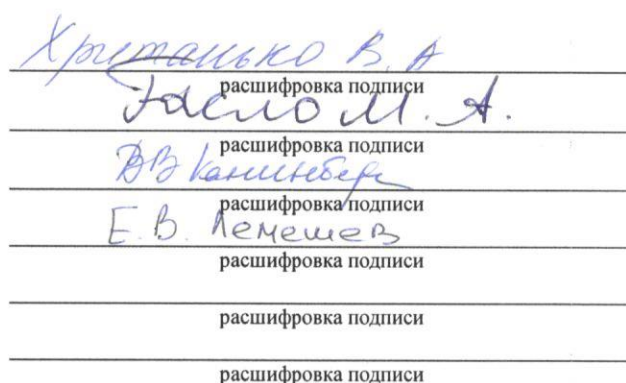 Хританько В. А
расшифровка подписи
М. А.
расшифровка подписи
ВВ
расшифровка подписи
Е.В. Лемешев
расшифровка подписи
расшифровка подписи
расшифровка подписи